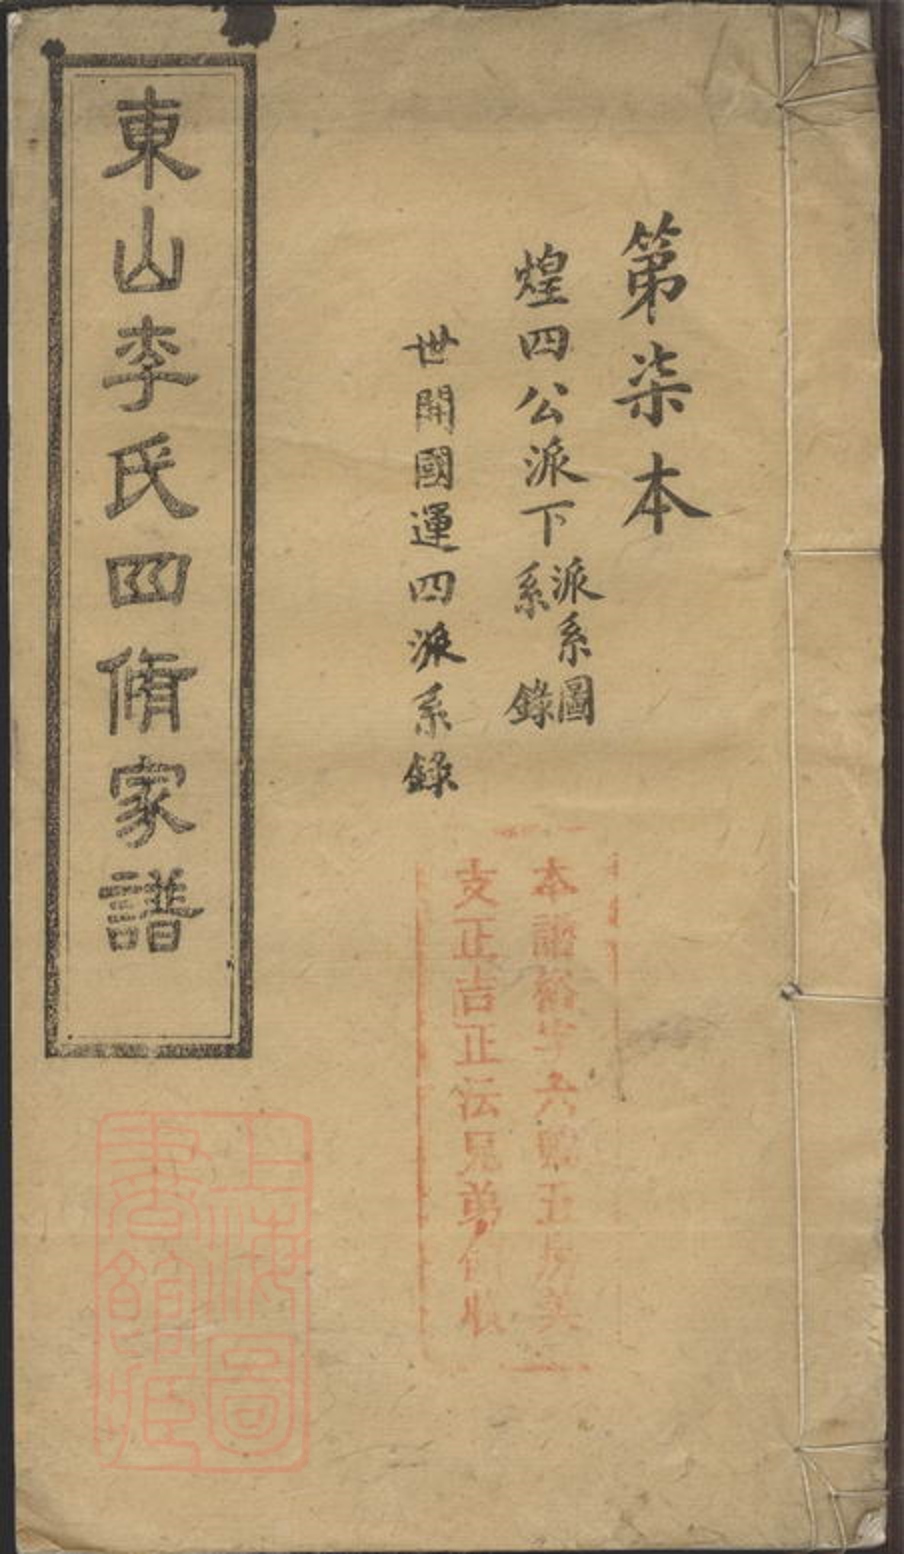 第柒本
煌四公派下
派系圖
系錄
世開國運四派系錄
本譜裕字六號五房美
支正吉正沄兄弟領收
東山李氏四脩家譜
上海圖
書館藏